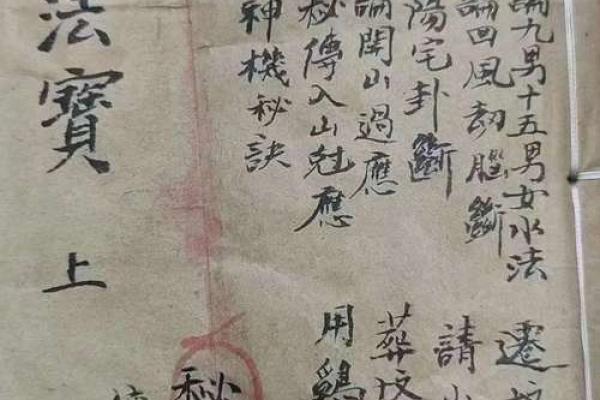 論九男十五男女水法
遷
論回風劫腦斷
請
陽宅卦斷
葬
論開山過應
用鷄
秘傳入山尅應
神機秘訣
秘
法寶 上